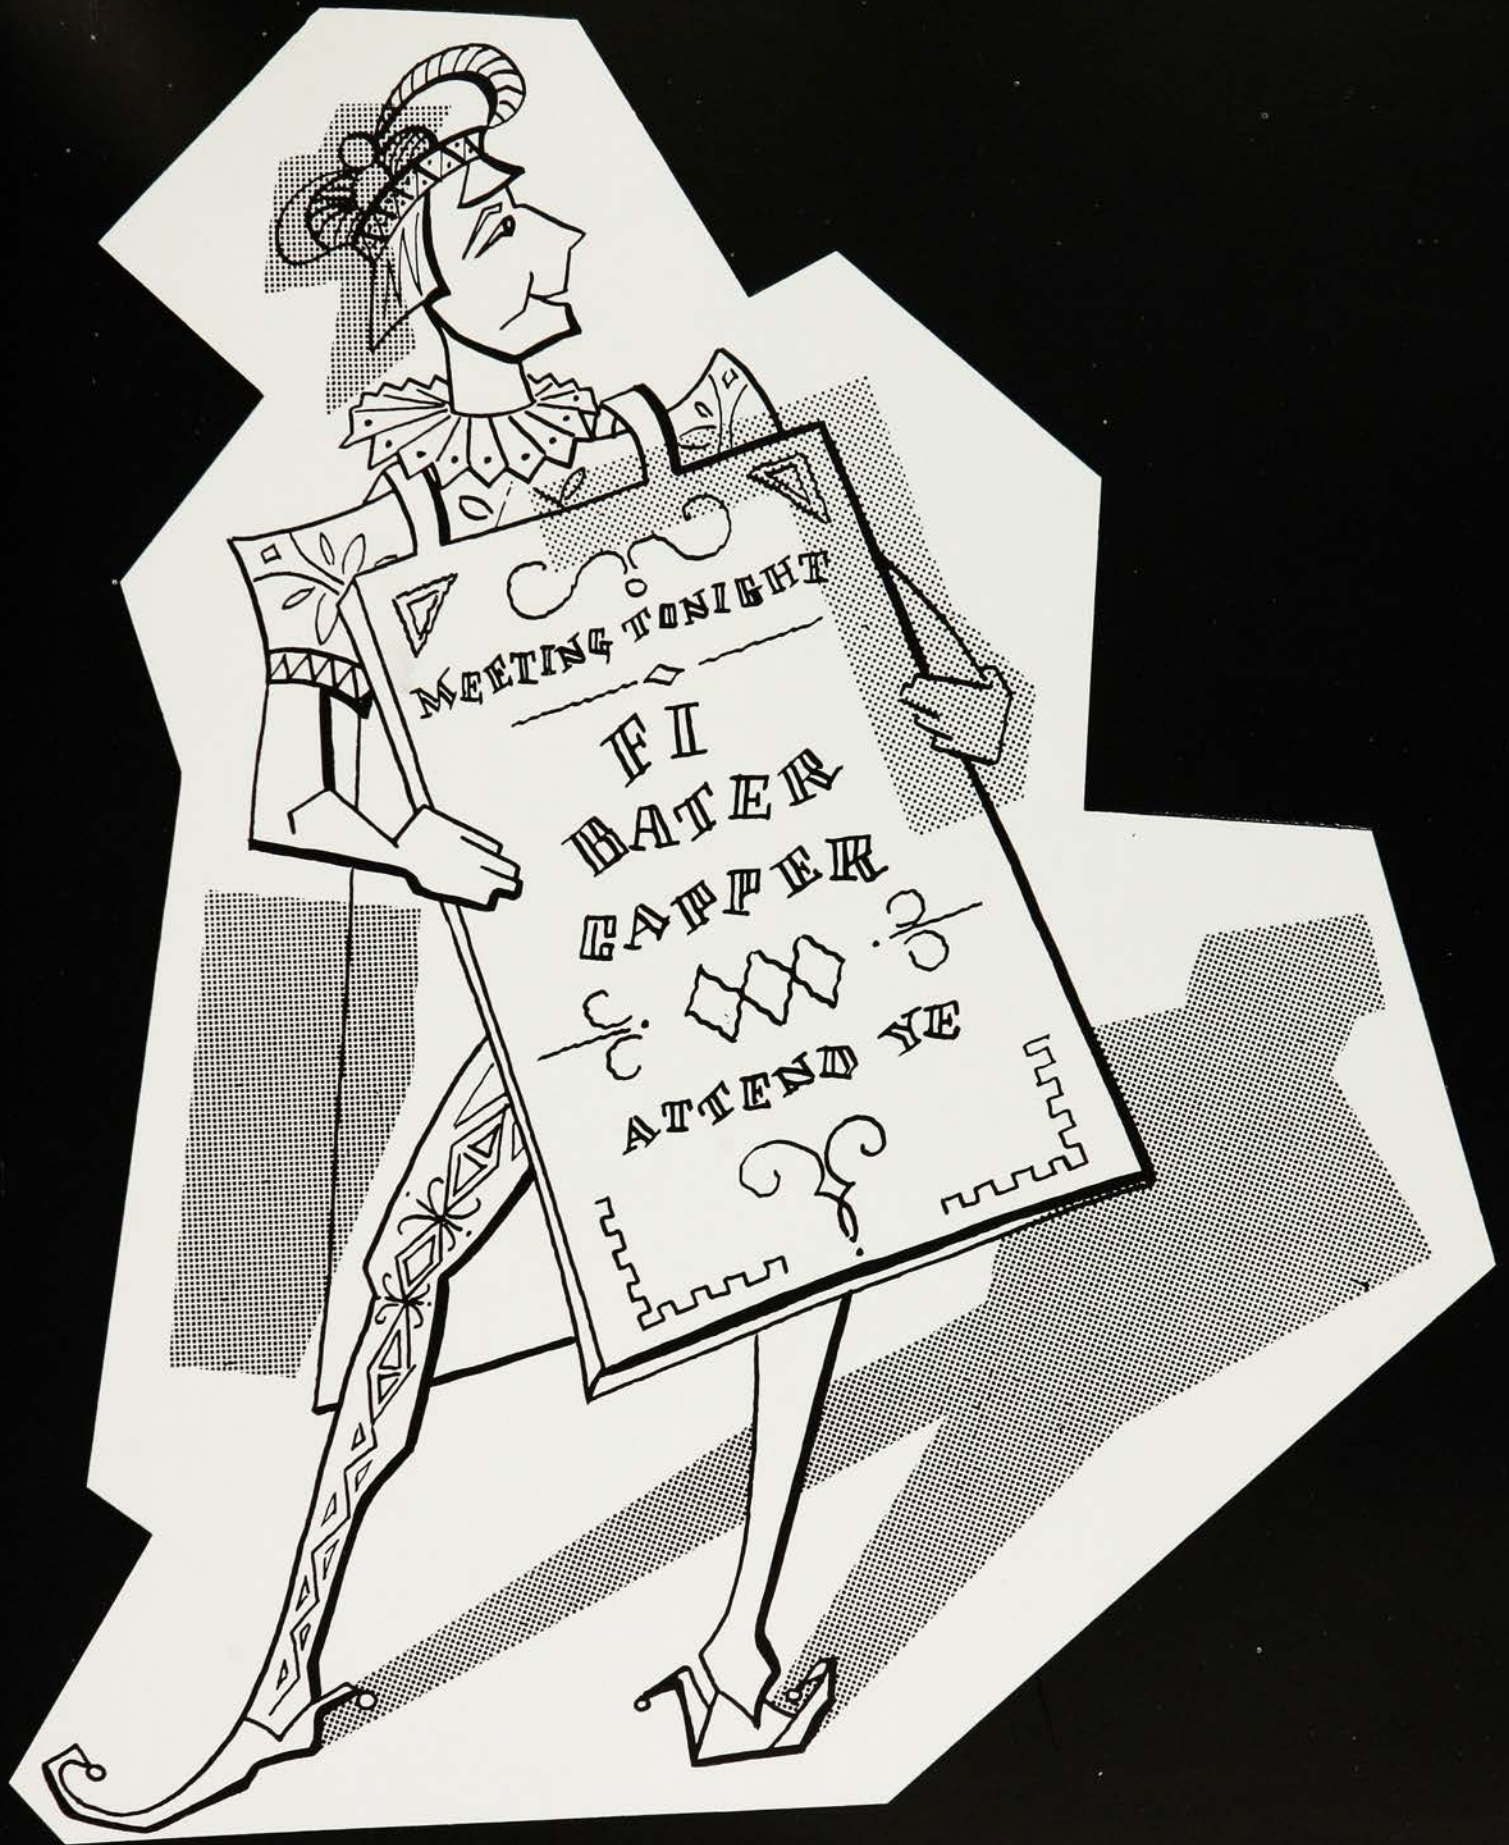 MEETING TONIGHT
FI
BATER
CAPPER
ATTEND YE